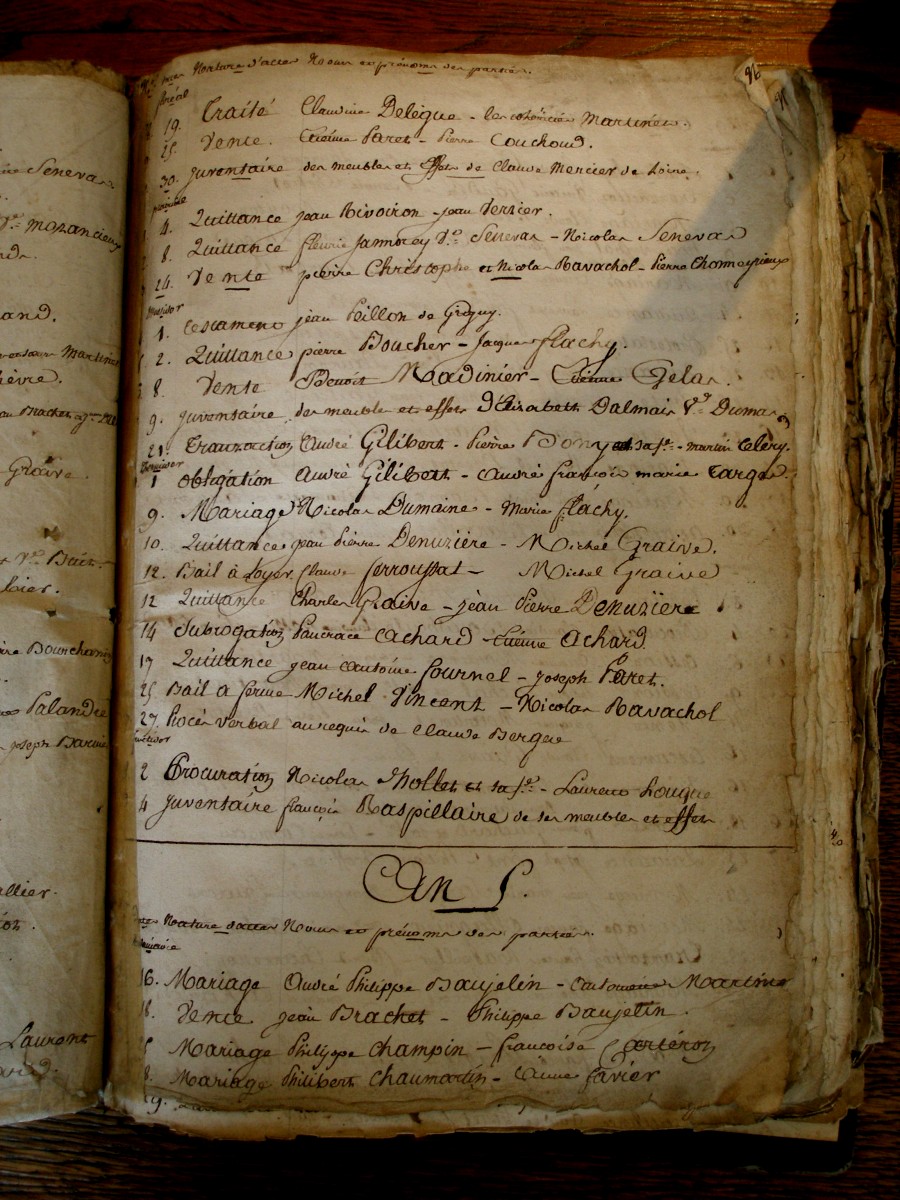 Senevas
Vᵉ mozancieux
and.
Martinet
ièvre.
Brachet
Graive
Vᵉ
loier.
Bourchanin
Palandre
joseph
allier.
Laurent
96
Nature d'actes Noms et prénoms des parties.
floréal
19. Traité Claudine Delègue - les cohéritiers Martinet.
25. Vente. Etiénne Paret - Pierre Couchoud.
30. juventaire des meubles et Effets de Claude Mercier de Loire.
prairial
4. Quittance jean Rivoiron - jean Verzier.
8. Quittance fleurie Janmorey Vᵉ Senevas - Nicolas Senevas
24. Vente pierre Christophe et Nicolas Ravachol - Pierre Chomeyrieux
messidor
1. testament jean Peillon de Grigny.
2. Quittance pierre Boucher - Jacques flachy.
8. Vente Benoit Madinier - Etienne Gelas.
9. juventaire des meubles et effets D'Elizabeth Dalmais Vᵉ Dumas
21. Transaction André Gilibert - Pierre Bony et sa fᵉ - martin Celery.
thermidor
1 obligation André Gilibert - André françois marie Targe.
9. Mariage Nicolas Dumaine - Marie flachy.
10. Quittance jean Pierre Denuzière - Michel Graive.
12. Bail à Loyer Claude ferroussat - Michel Graive
12 Quittance Charles Graive - jean Pierre Denuzière
14 Subrogation Pancrace Achard - Etienne Achard
17 Quittance jean Antoine fournel - joseph Paret.
25 Bail a ferme Michel Vincent - Nicolas Ravachol
27. Procès verbal au requis de Claude Bergue
fructidor
2 Procuration Nicolas thollet et sa fᵉ - Laurent
4 juventaire françois Raspillaire de ses meubles et effets
An 5.
Nature d'actes Noms et prénoms des parties.
16. Mariage André Philippe Baujelin - Martinet
18. Vente jean Brachet - Philippe Baujelin.
5 Mariage Philippe Champin - francoise
8. Mariage Philibert Chaumartin - favier
9.